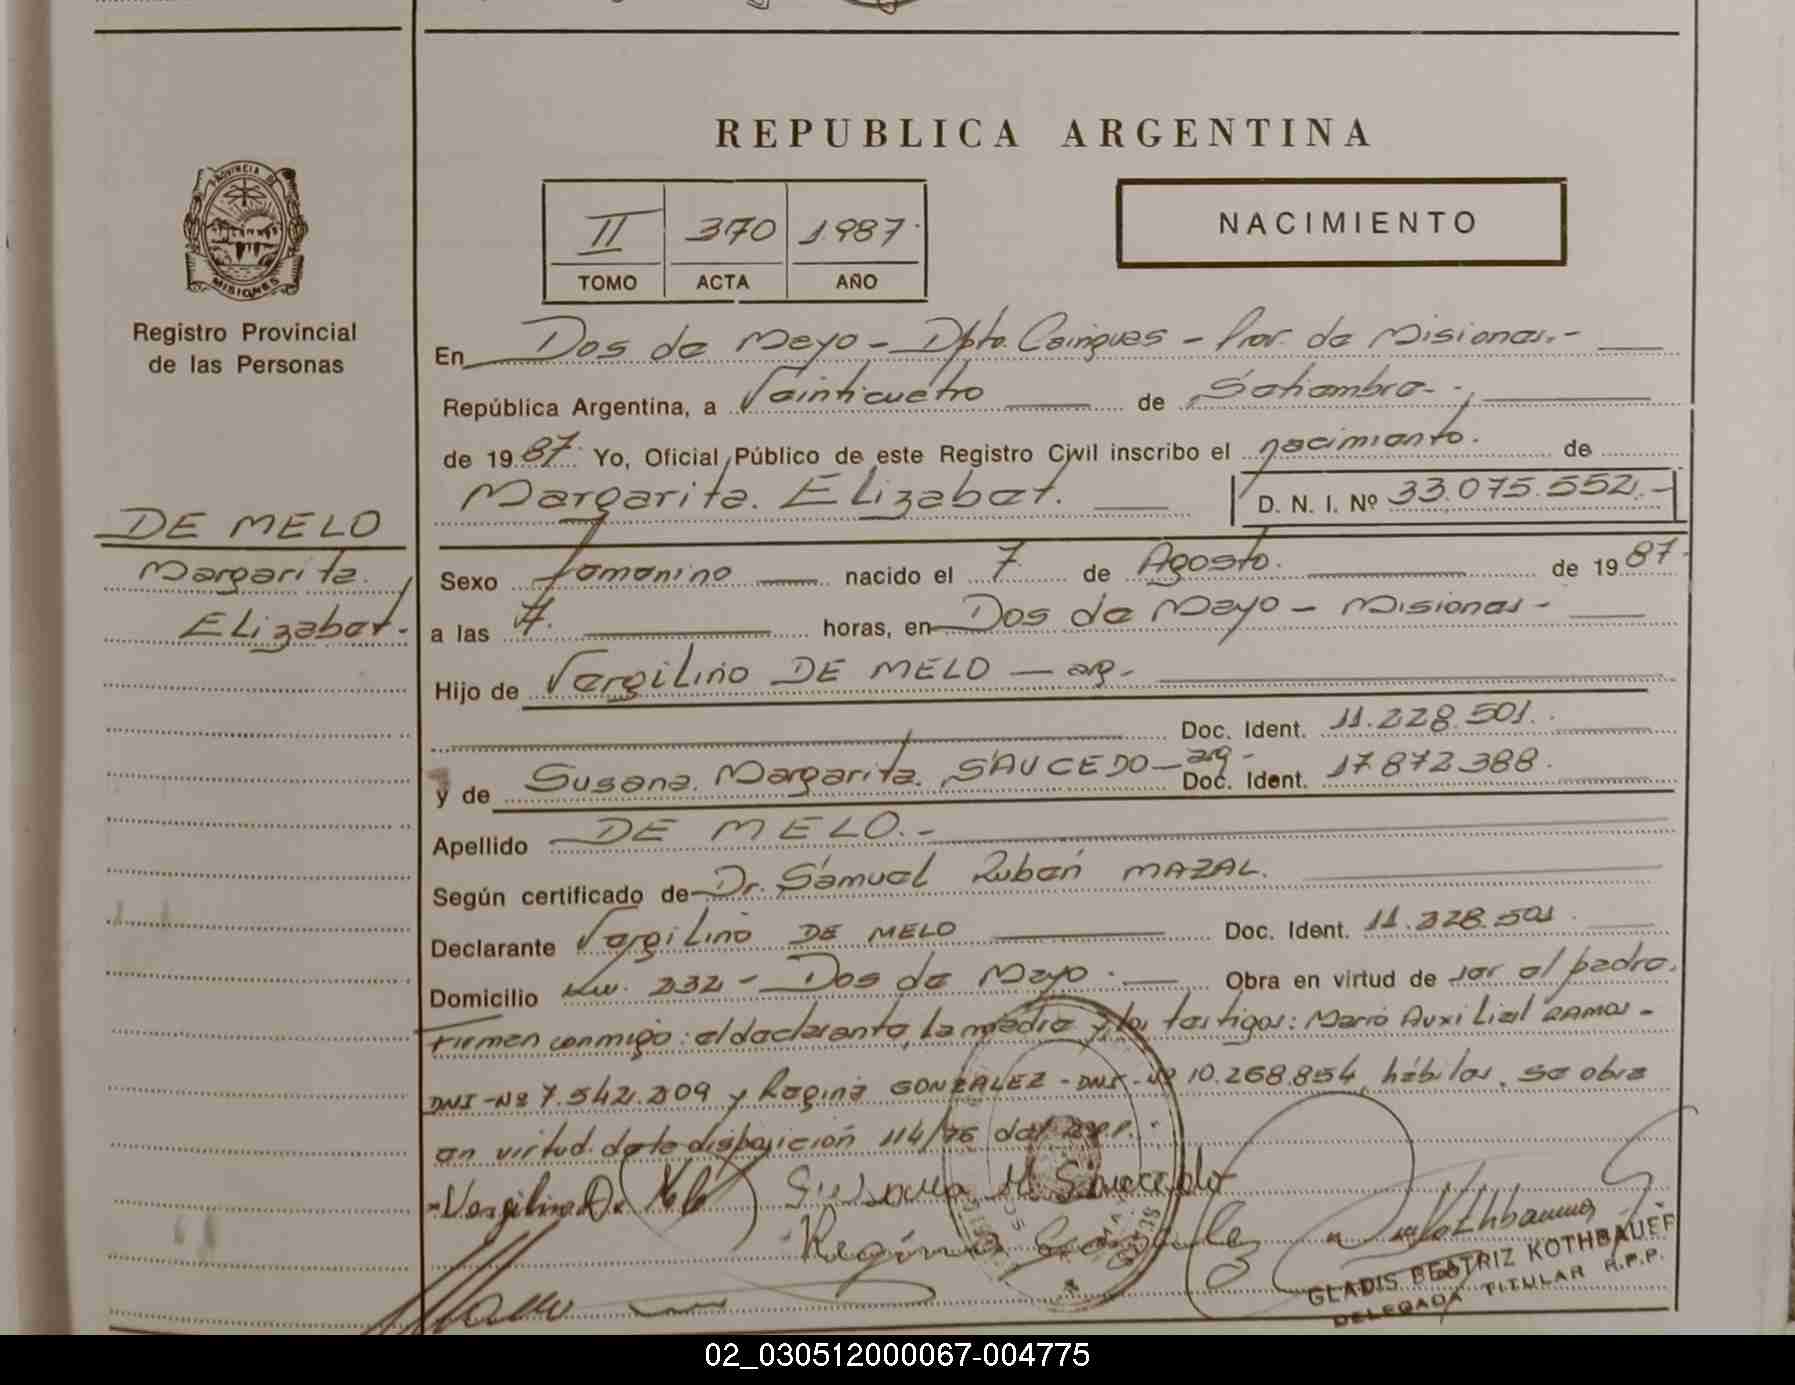 REPUBLICA ARGENTINA
PROVINCIA DE
MISIONES
Registro Provincial
de las Personas
II 370 1987
TOMO ACTA AÑO
NACIMIENTO
En Dos de Mayo - Dpto. Cainguas - Prov. de Misiones.-
República Argentina, a Veinticuatro de Setiembre.-
de 1987. Yo, Oficial Público de este Registro Civil inscribo el nacimiento. de
Margarita Elizabet. D. N. I. Nº 33.075.552.-
DE MELO
Margarita
Elizabet.-
Sexo femenino nacido el 7 de Agosto. de 1987.
a las 7. horas, en Dos de Mayo - Misiones -
Hijo de Vergilino DE MELO - arg.
Doc. Ident. 11.228.501.
y de Susana Margarita SAUCEDO - arg - Doc. Ident. 17.872.388.
Apellido DE MELO.-
Según certificado de Dr. Samuel Rubén MAZAL.
Declarante Vergilino DE MELO Doc. Ident. 11.328.501.
Domicilio Km. 232 - Dos de Mayo. Obra en virtud de ser el padre.
Firman conmigo: el declarante, la madre y los testigos: Mario Auxilial RAMOS -
DNI-Nº 7.542.209 y Regina GONZALEZ - DNI-Nº 10.268.854, hábiles. Se obra
en virtud de la disposición 114/76 del R.P.P.-
Vergilino De Melo Susana M Saucedo
Regina Gonzalez Kothbauer
GLADIS BEATRIZ KOTHBAUER
DELEGADA TITULAR R.P.P.
02_030512000067-004775